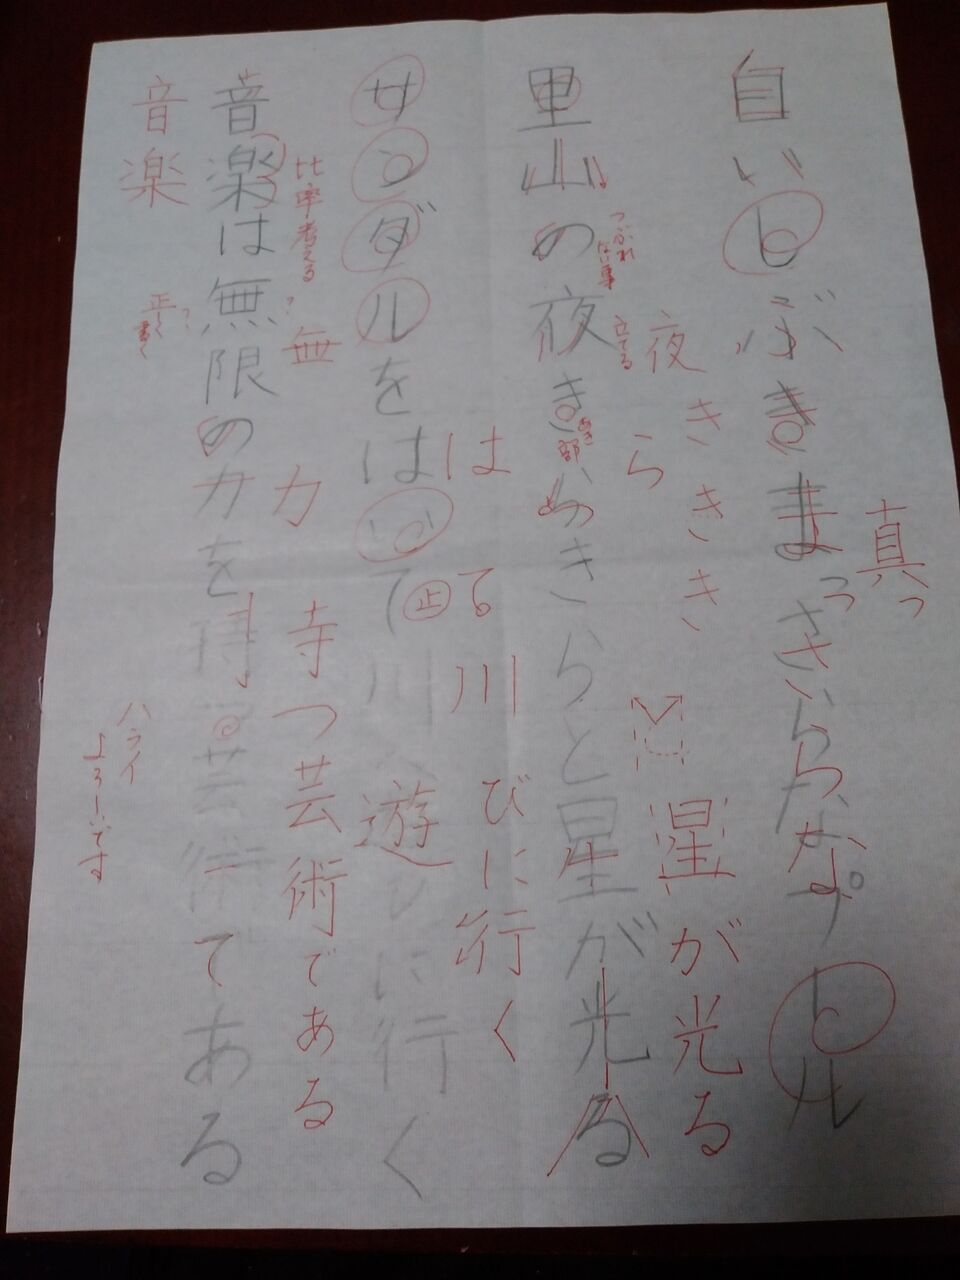 自いしぶきまっさらなプール
真っ
里山の夜きらきらと星が光る
つぶれ
ない事
立てる
夜
ききき
ら
あき
部
星が光る
サンダルをはいて川遊びに行く
は
止
る川
びに行く
音楽は無限の力を持つ芸術である
比率考える
無
力
寺つ芸術である
音楽
正しく書く
ハライ
よろしいです